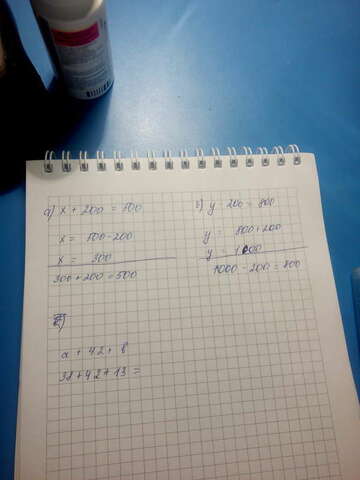 а) x + 200 = 500
x = 500 - 200
x = 300
300 + 200 = 500
б) y - 200 = 800
y = 800 + 200
y = 1000
1000 - 200 = 800
a + 42 + b
38 + 42 + 13 =